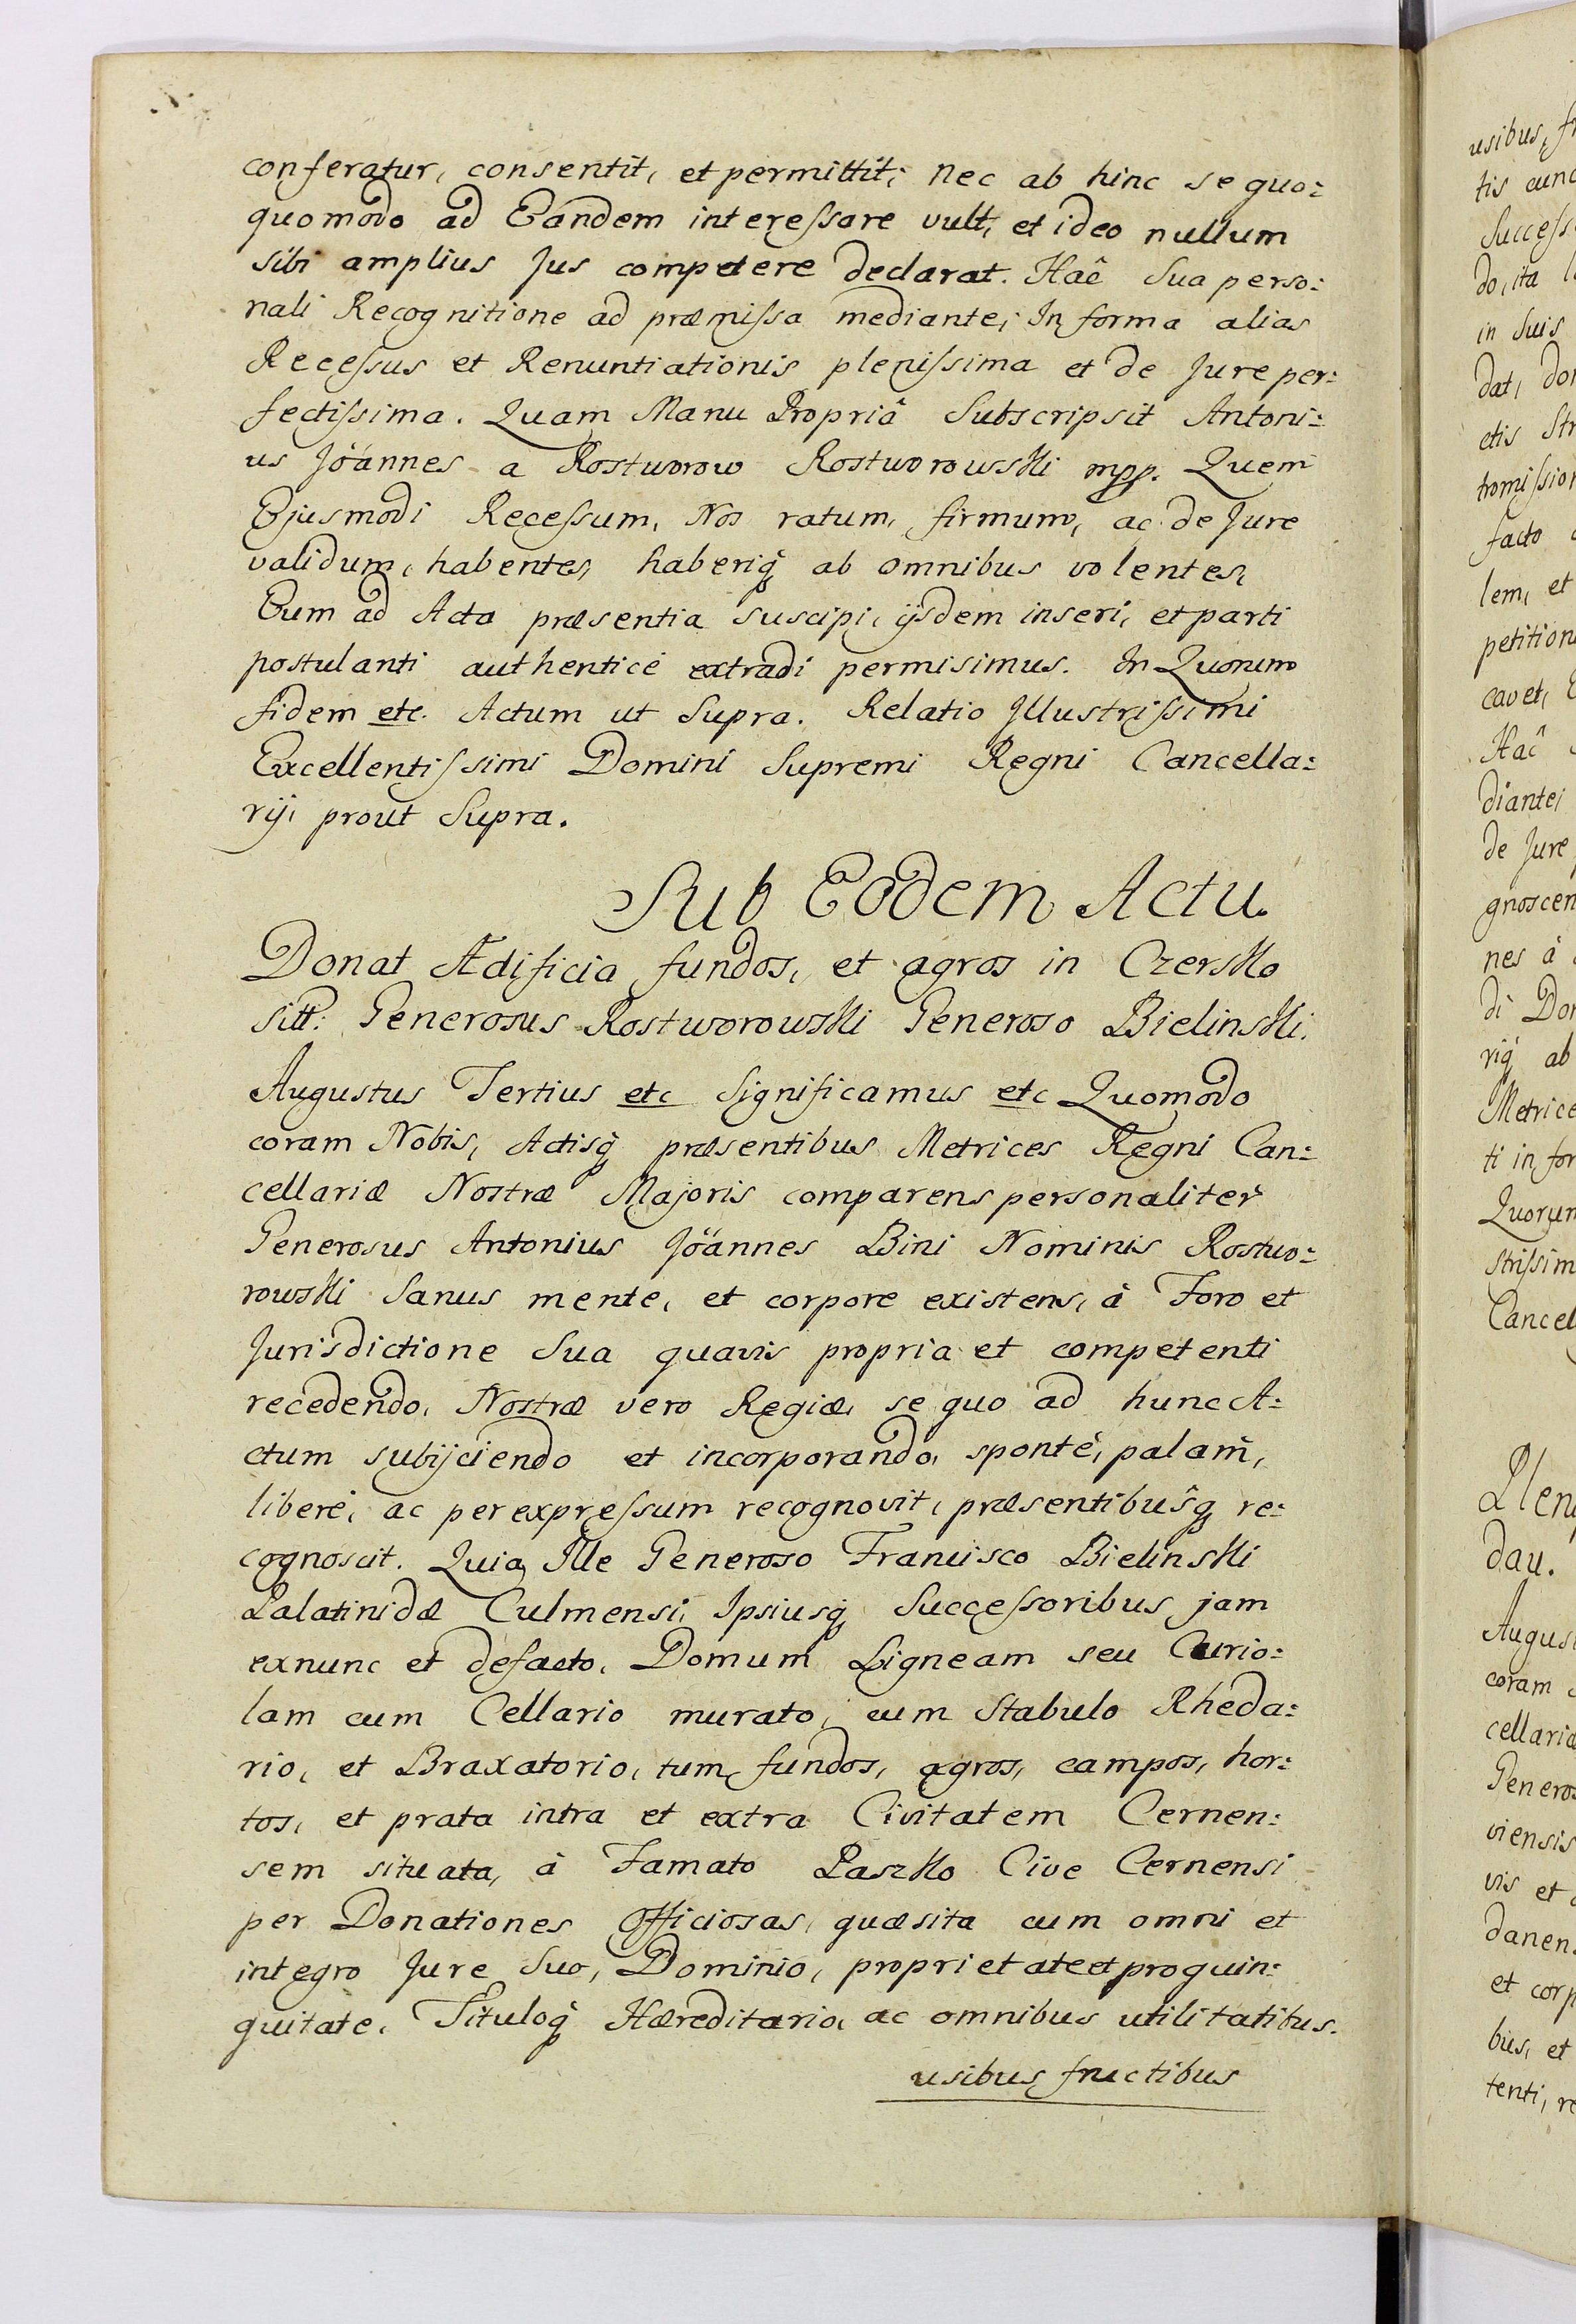 conferatur, consentit, et permittit; nec ab hinc se quo:
quomodo ad Eandem interessare vult, et ideo nullum
sibi amplius Jus competere declarat. Hac Sua perso:
nali Recognitione ad præmissa mediante, In forma alias
Recessus et Renuntiationis plenissima et de Jure per:
fectissima. Quam Manu Propriâ Subscripsit Antoni:
us Joannes a Rostworow Rostworowski mpp. Quem
Ejusmodi Recessum, Nos ratum, firmum, ac de Jure
validum, habentes, haberiq́ ab omnibus volentes,
Eum ad Acta præsentia suscipi, ijsdem inseri, et parti
postulanti authenticè extradi permisimus. In Quorum
fidem etc. Actum ut Supra. Relatio Jllustrissimi
Excellentissimi Domini Supremi Regni Cancella:
rij, prout Supra.
Sub Eodem Actu.
Donat Ædificia fundos, et agros in Czersko
sitt: Generosus Rostworowski Generoso Bielinski.
Augustus Tertius etc Significamus etc Quomodo
coram Nobis, Actisq́ præsentibus Metrices Regni Can:
cellariæ Nostræ Majoris comparens personaliter
Generosus Antonius Joännes Bini Nominis Rostwo:
rowski Sanus mente, et corpore existens, à Foro et
Jurisdictione Sua quavis propria et competenti
recedendo, Nostræ vero Regiæ, se quo ad hunc A:
ctum subijciendo et incorporando, spontè, palam,
liberè, ac per expressum recognovit, præsentibusq́ re:
cognoscit. Quia Ille Generoso Francisco Bielinski
Palatinidæ Culmensi, Ipsiusq́ Successoribus jam
exnunc et defacto, Domum Ligneam seu Curio:
lam cum Cellario murato, cum Stabulo Rheda:
rio, et Braxatorio, tum fundos, agros, campos, hor:
tos, et prata intra et extra Civitatem Cernen:
sem situata, à Famato Paszko Cive Cernensi
per Donationes Officiosas, quæsita cum omni et
integro Jure Suo, Dominio, proprietate et proquin:
quitate, Tituloq́ Hæreditario, ac omnibus utilitatibus.
usibus fructibus
usibus, fr
tis cunc
Success
do, ita l
in Suis
dat, do
ctis Str
tromission
facto
lem, et
petition
cavet, E
Hac
diante,
de Jure
gnoscen
nes à
di Don
riq́ ab
Metrice
ti in for
Quorum
strissim
Cancel
Plen
dau.
Augus
coram
cellariæ
Generos
viensis
vis et
danen
et corp
bus, et
tenti, re